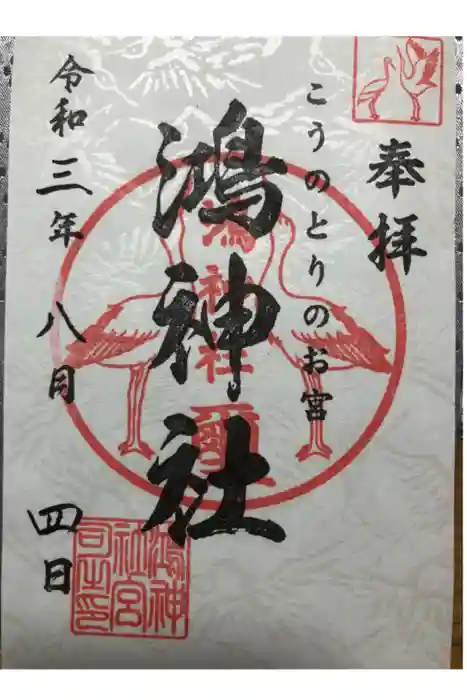 奉拝
こうのとりのお宮
鴻神社
鴻神社璽
令和三年 八月 四日
鴻神
社宮
司之印